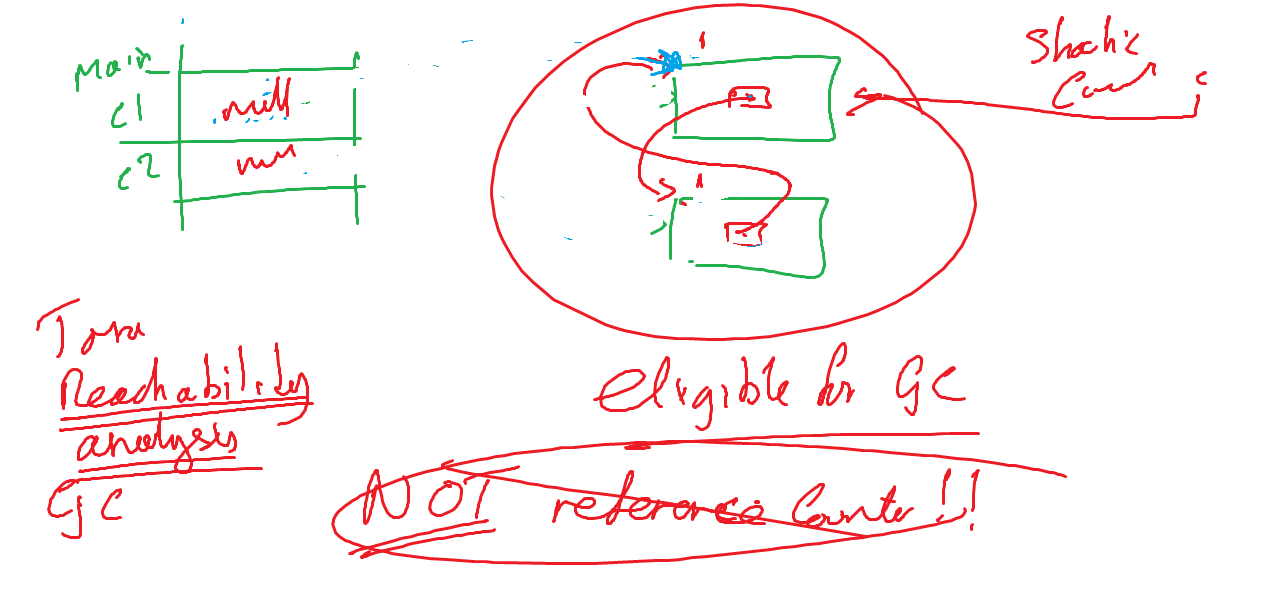 Main
c1 null
c2 null
1
Static
Count
c
1
Java
Reachability
analysis
GC
eligible for GC
NOT reference Counter!!